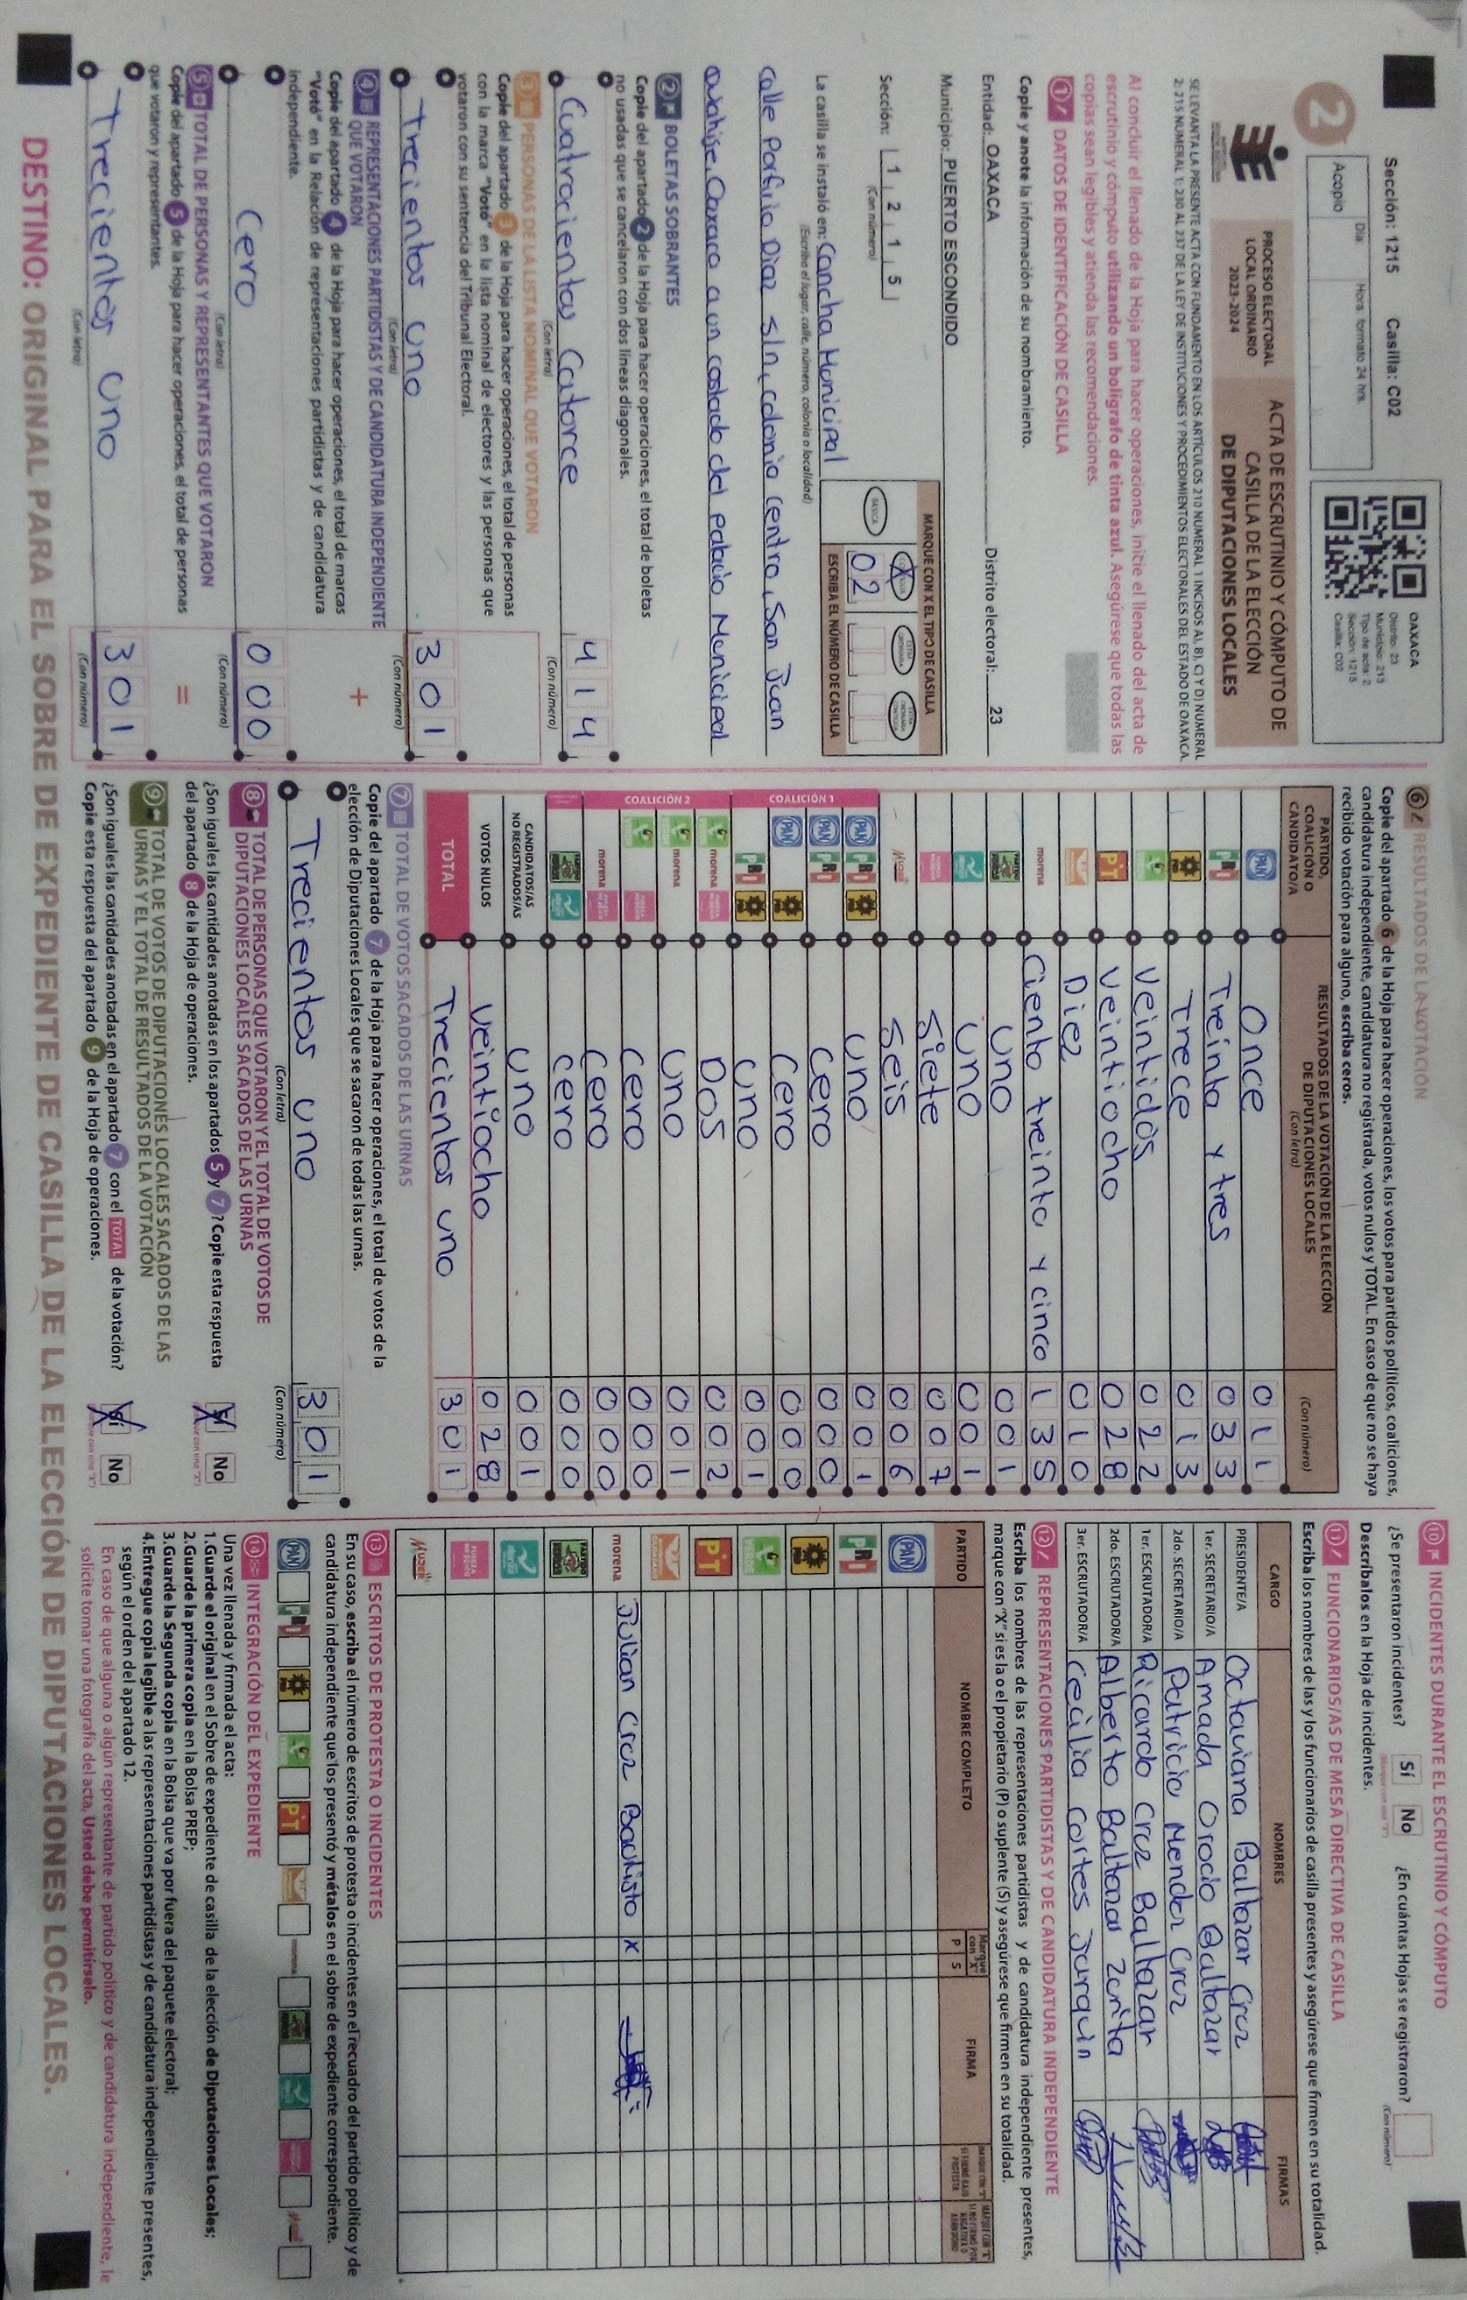 Sección: 1215 Casilla: C02
Día: Hora: formato 24 hrs.
Acopio
OAXACA
Distrito: 23
Municipio: 213
Tipo de acta: 2
Sección: 1215
Casilla: C02
2
PROCESO ELECTORAL
LOCAL ORDINARIO
2023-2024
ACTA DE ESCRUTINIO Y CÓMPUTO DE
CASILLA DE LA ELECCIÓN
DE DIPUTACIONES LOCALES
SE LEVANTA LA PRESENTE ACTA CON FUNDAMENTO EN LOS ARTÍCULOS 210 NUMERAL 1 INCISOS A), B), C) Y D) NUMERAL
2; 215 NUMERAL 1; 230 AL 237 DE LA LEY DE INSTITUCIONES Y PROCEDIMIENTOS ELECTORALES DEL ESTADO DE OAXACA.
Al concluir el llenado de la Hoja para hacer operaciones, inicie el llenado del acta de
escrutinio y cómputo utilizando un bolígrafo de tinta azul. Asegúrese que todas las
copias sean legibles y atienda las recomendaciones.
1 DATOS DE IDENTIFICACIÓN DE CASILLA
Copie y anote la información de su nombramiento.
Entidad: OAXACA Distrito electoral: 23
Municipio: PUERTO ESCONDIDO
Sección: 1 2 1 5
(Con número)
MARQUE CON X EL TIPO DE CASILLA
BÁSICA X
ESCRIBA EL NÚMERO DE CASILLA
02
La casilla se instaló en: Cancha Municipal
(Escriba el lugar, calle, número, colonia o localidad)
Calle Porfirio Diaz S/n, Colonia Centro, San Juan
Oaxaca a un costado del palacio Municipal
2 BOLETAS SOBRANTES
Copie del apartado 2 de la Hoja para hacer operaciones, el total de boletas
no usadas que se cancelaron con dos líneas diagonales.
Cuatrocientas Catorce 414
(Con letra) (Con número)
3 PERSONAS DE LA LISTA NOMINAL QUE VOTARON
Copie del apartado 3 de la Hoja para hacer operaciones, el total de personas
con la marca "Votó" en la lista nominal de electores y las personas que
votaron con su sentencia del Tribunal Electoral.
Trecientos uno 301
(Con letra) (Con número)
4 REPRESENTACIONES PARTIDISTAS Y DE CANDIDATURA INDEPENDIENTE
QUE VOTARON
Copie del apartado 4 de la Hoja para hacer operaciones, el total de marcas
"Votó" en la Relación de representaciones partidistas y de candidatura
independiente.
+
Cero 000
(Con letra) (Con número)
5 TOTAL DE PERSONAS Y REPRESENTANTES QUE VOTARON
Copie del apartado 5 de la Hoja para hacer operaciones, el total de personas
que votaron y representantes.
=
Trecientos uno 301
(Con letra) (Con número)
6 RESULTADOS DE LA VOTACIÓN
Copie del apartado 6 de la Hoja para hacer operaciones, los votos para partidos políticos, coaliciones,
candidatura independiente, candidatura no registrada, votos nulos y TOTAL. En caso de que no se haya
recibido votación para alguno, escriba ceros.
PARTIDO,
COALICIÓN O
CANDIDATO/A
RESULTADOS DE LA VOTACIÓN DE LA ELECCIÓN
DE DIPUTACIONES LOCALES
(Con letra)
(Con número)
PAN Once 011
PRI Treinta y tres 033
PRD Trece 013
VERDE Veintidos 022
PT Veintiocho 028
Diez 010
morena Ciento treinta y cinco 135
uno 001
uno 001
Siete 007
MUJER Seis 006
COALICIÓN 1
PAN PRI PRD uno 001
PAN PRI Cero 000
PAN PRD Cero 000
PRI PRD uno 001
COALICIÓN 2
VERDE morena Dos 002
VERDE morena uno 001
VERDE Cero 000
morena Cero 000
cero 000
CANDIDATOS/AS
NO REGISTRADOS/AS uno 001
VOTOS NULOS Veintiocho 028
TOTAL Trecientos uno 301
7 TOTAL DE VOTOS SACADOS DE LAS URNAS
Copie del apartado 7 de la Hoja para hacer operaciones, el total de votos de la
elección de Diputaciones Locales que se sacaron de todas las urnas.
Trecientos uno 301
(Con letra) (Con número)
8 TOTAL DE PERSONAS QUE VOTARON Y EL TOTAL DE VOTOS DE
DIPUTACIONES LOCALES SACADOS DE LAS URNAS
¿Son iguales las cantidades anotadas en los apartados 5 y 7? Copie esta respuesta
del apartado 8 de la Hoja de operaciones.
Sí No
9 TOTAL DE VOTOS DE DIPUTACIONES LOCALES SACADOS DE LAS
URNAS Y EL TOTAL DE RESULTADOS DE LA VOTACIÓN
¿Son iguales las cantidades anotadas en el apartado 7 con el TOTAL de la votación?
Copie esta respuesta del apartado 9 de la Hoja de operaciones.
Sí No
10 INCIDENTES DURANTE EL ESCRUTINIO Y CÓMPUTO
¿Se presentaron incidentes? Sí No ¿En cuántas Hojas se registraron?
(Con número)
Descríbalos en la Hoja de incidentes.
11 FUNCIONARIOS/AS DE MESA DIRECTIVA DE CASILLA
Escriba los nombres de las y los funcionarios de casilla presentes y asegúrese que firmen en su totalidad.
CARGO NOMBRES FIRMAS
PRESIDENTE/A Octaviana Baltazar Cruz
1er. SECRETARIO/A Amada Orocio Baltazar
2do. SECRETARIO/A Patricia Mendez Cruz
1er. ESCRUTADOR/A Ricardo Cruz Baltazar
2do. ESCRUTADOR/A Alberto Baltazar Zurita
3er. ESCRUTADOR/A Cecilia Cortes Jarquin
12 REPRESENTACIONES PARTIDISTAS Y DE CANDIDATURA INDEPENDIENTE
Escriba los nombres de las representaciones partidistas y de candidatura independiente presentes,
marque con "X" si es la o el propietario (P) o suplente (S) y asegúrese que firmen en su totalidad.
PARTIDO NOMBRE COMPLETO Marque con "X" P S FIRMA
PAN
PRI
PRD
VERDE
PT
morena Julian Cruz Bautista X
MUJER
13 ESCRITOS DE PROTESTA O INCIDENTES
En su caso, escriba el número de escritos de protesta o incidentes en el recuadro del partido político y de
candidatura independiente que los presentó y métalos en el sobre de expediente correspondiente.
PAN PRI PRD VERDE PT morena
14 INTEGRACIÓN DEL EXPEDIENTE
Una vez llenada y firmada el acta:
1.Guarde el original en el Sobre de expediente de casilla de la elección de Diputaciones Locales;
2.Guarde la primera copia en la Bolsa PREP;
3.Guarde la Segunda copia en la Bolsa que va por fuera del paquete electoral;
4.Entregue copia legible a las representaciones partidistas y de candidatura independiente presentes,
según el orden del apartado 12.
En caso de que alguna o algún representante de partido político y de candidatura independiente, le
solicite tomar una fotografía del acta, Usted debe permitírselo.
DESTINO: ORIGINAL PARA EL SOBRE DE EXPEDIENTE DE CASILLA DE LA ELECCIÓN DE DIPUTACIONES LOCALES.